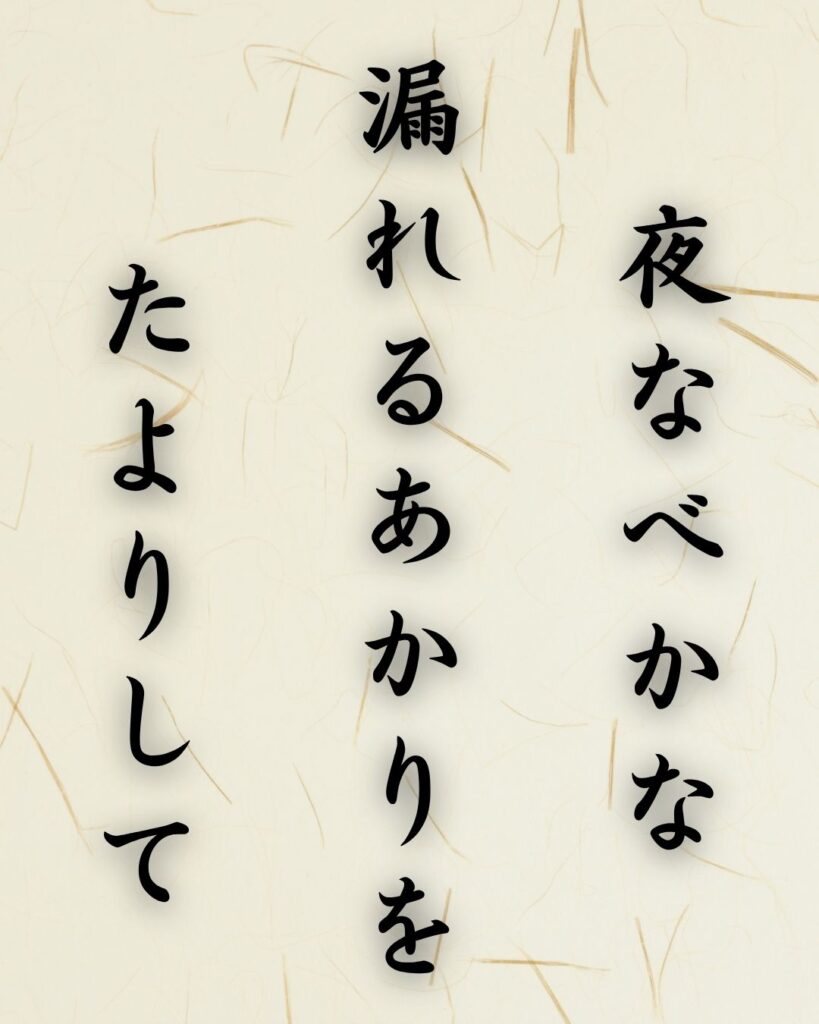 夜なべかな
漏れるあかりを
たよりして